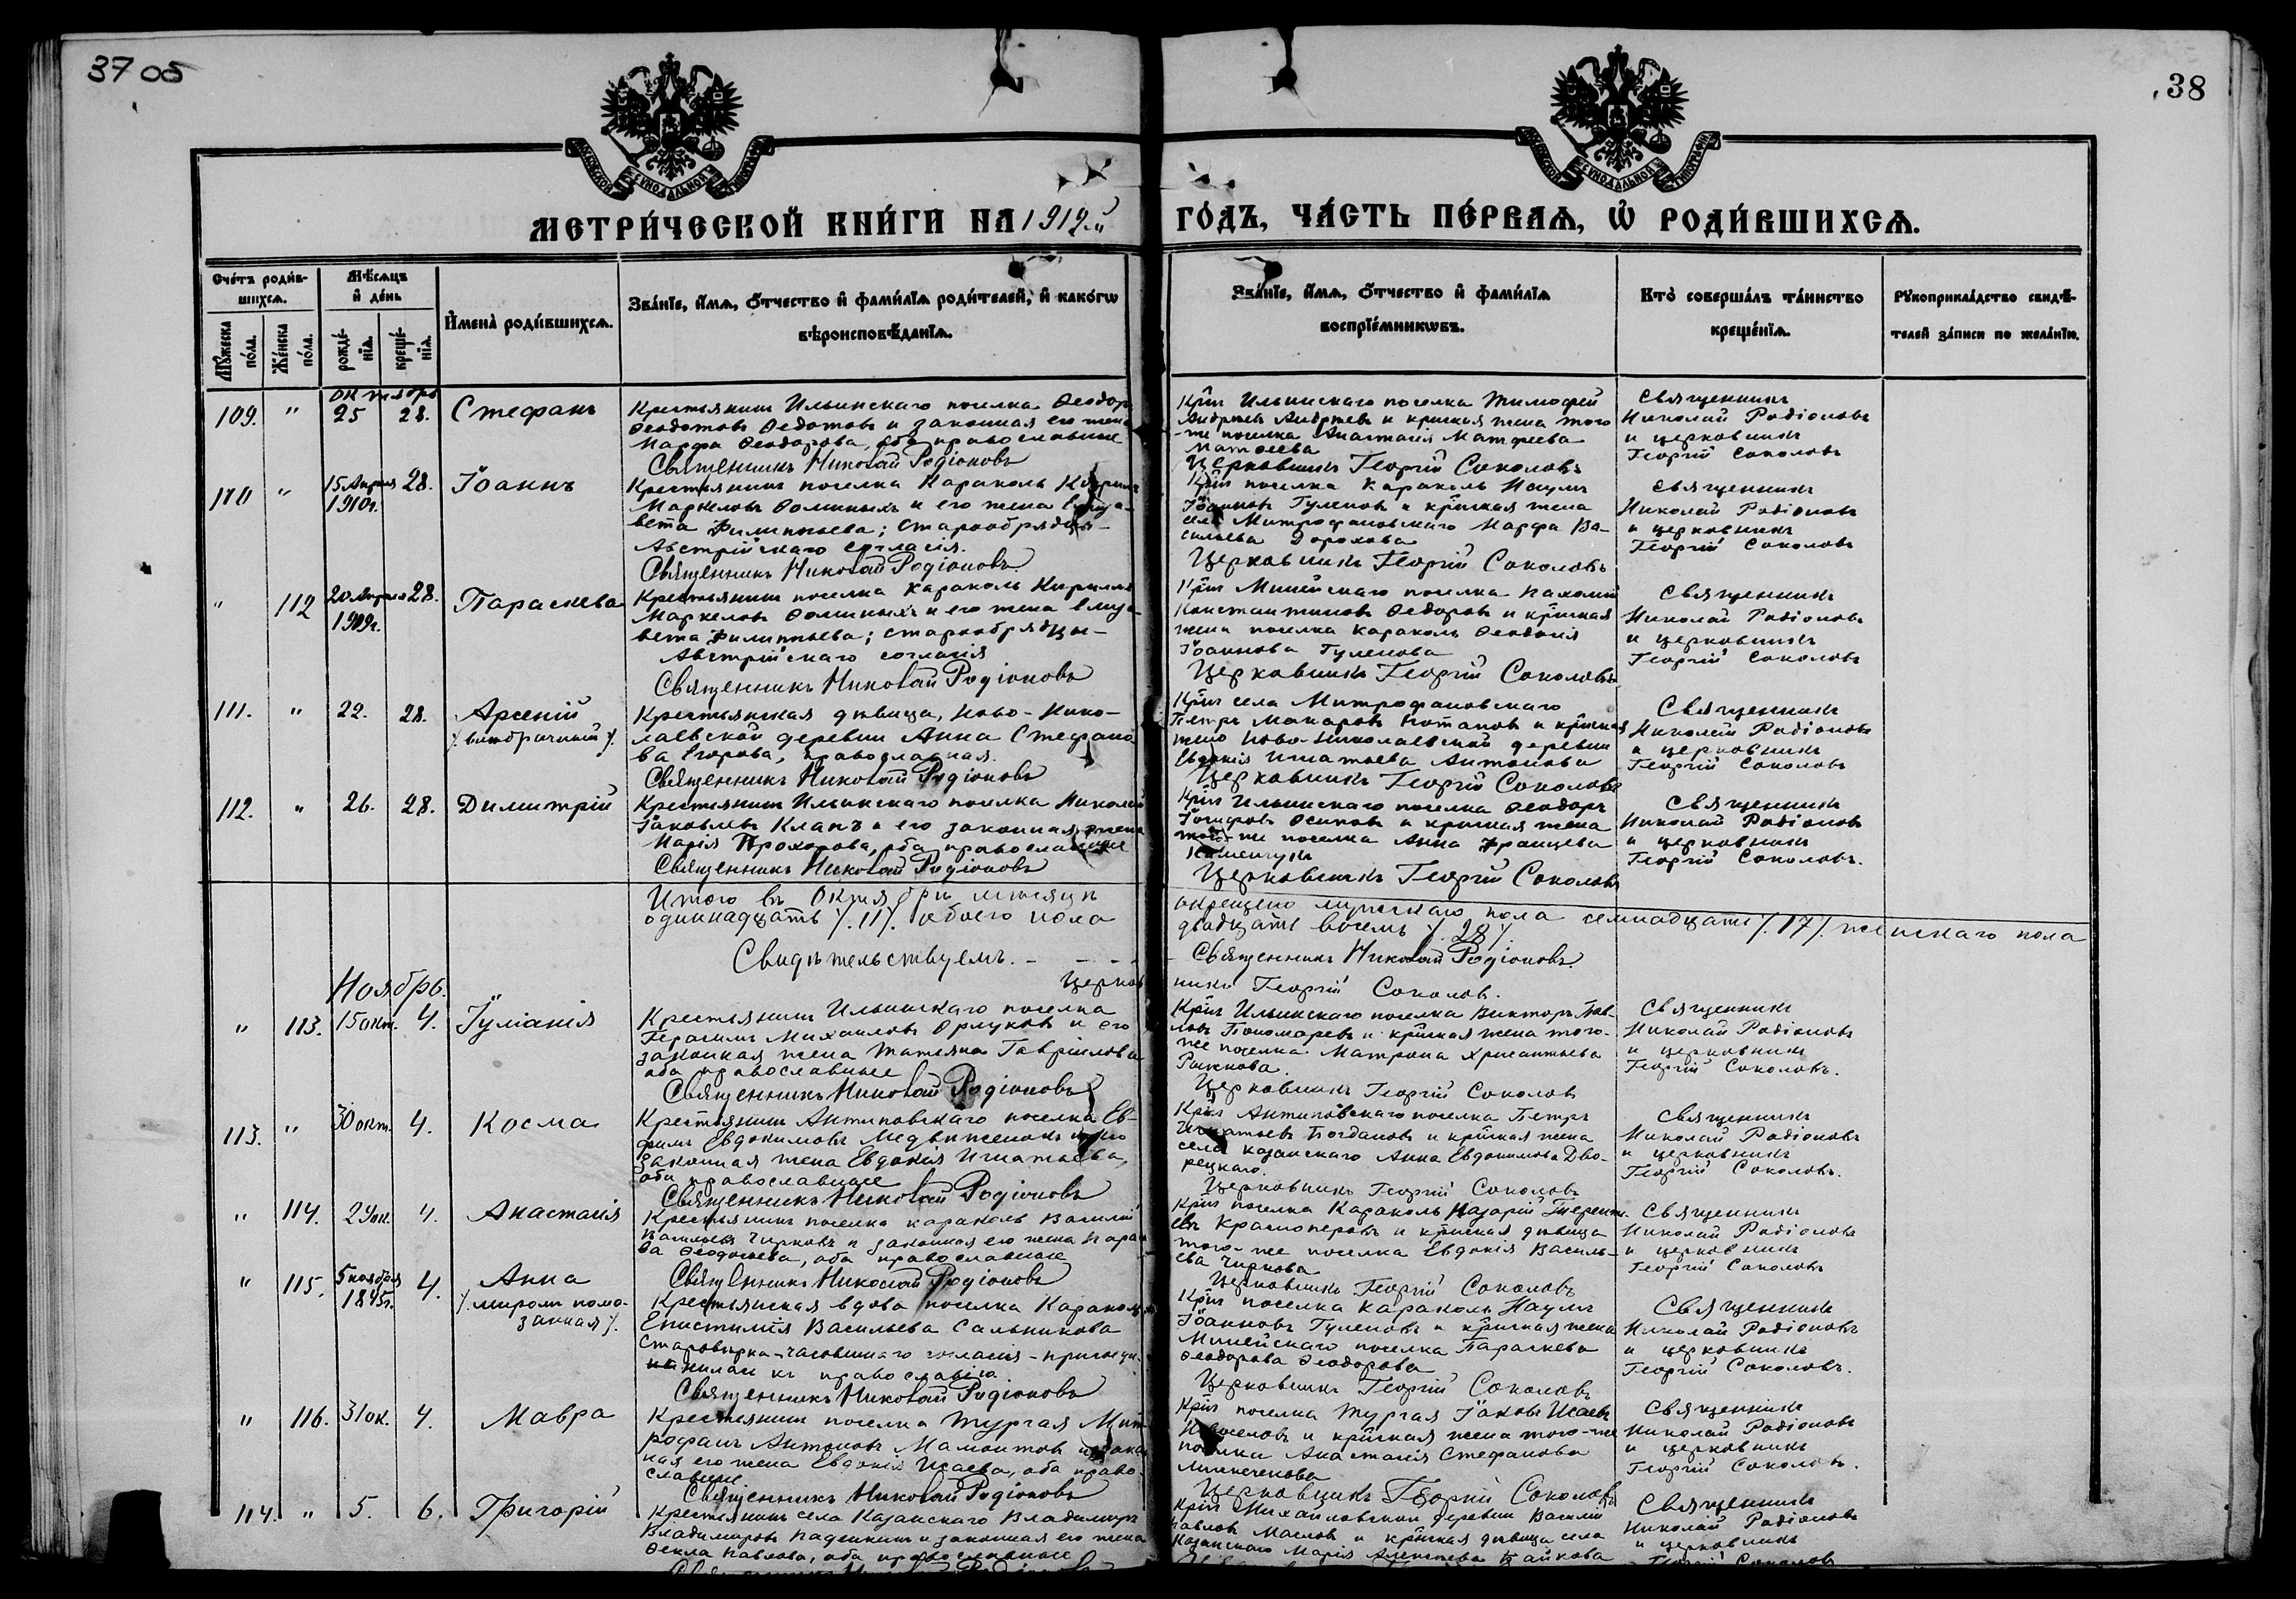 37 об
38
МОСКОВСКОЙ СѴНОДАЛЬНОЙ ТИПОГРАФІИ
МОСКОВСКОЙ СѴНОДАЛЬНОЙ ТИПОГРАФІИ
МЕТРИ́ЧЕСКОЙ КНИ́ГИ НА 1912.й
ГО́ДЪ, ЧА́СТЬ ПЕ́РВАѦ, Ѡ҆ РОДИ́ВШИХСѦ.
Сче́тъ роди́в-
шихсѧ.
Мѣ́сѧцъ
и҆ де́нь
Мꙋ́жеска
по́ла.
Же́нска
по́ла.
рожде́-
нїѧ.
креще́-
нїѧ.
И҆мена̀ роди́вшихсѧ.
Зва́нїе, и҆́мѧ, ѻ҆́тчество и҆ фами́лїѧ роди́телей, и҆ како́гѡ
вѣроисповѣ́данїѧ.
Зва́нїе, и҆́мѧ, ѻ҆́тчество и҆ фами́лїѧ
воспрїе́мникѡвъ.
Кто̀ соверша́лъ та́инство
креще́нїѧ.
Рꙋкоприкла́дство свидѣ́-
телей за́писи по жела́нїю.
октябрь
109. " 25 28. Стефанъ
Крестьянинъ Ильинскаго поселка Ѳеодоръ
Ѳеодотовъ Ѳедотовъ и законная его жена
Марфа Ѳеодорова, оба православные
Священникъ Николай Родіоновъ
Крїн Ильинскаго поселка Тимофей
Андреевъ Андреевъ и крїнская жена того
-же поселка Анастасія Матфеева
Матвеева
Церковникъ Георгій Соколовъ
Священникъ
Николай Родіоновъ
и церковникъ
Георгій Соколовъ
110 " 15 Апреля 28. Іоаннъ
1910г.
Крестьянинъ поселка Караколь Кирилъ
Маркеловъ Ѳоминыхъ и его жена Елиза-
вета Филиппьева; старообрядцы-
Австрійскаго согласія.
Священникъ Николай Родіоновъ
Крїн поселка Караколь Наумъ
Іоанновъ Гуленовъ и крїнская жена
села Митрофановскаго Марфа Ва-
сильева Дорохова
Церковникъ Георгій Соколовъ
Священникъ
Николай Родіоновъ
и церковникъ
Георгій Соколовъ
" 112 20 Апреля 28. Параскева
1909г.
Крестьянинъ поселка Караколь Кириллъ
Маркеловъ Ѳоминыхъ и его жена Елиза-
вета Филиппьева; старообрядцы-
Австрійскаго согласія
Священникъ Николай Родіоновъ
Крїн Минейскаго поселка Пахомій
Константиновъ Ѳедоровъ и крїнская
жена поселка Караколь Ѳеодосія
Іоаннова Гуленова
Церковникъ Георгій Соколовъ
Священникъ
Николай Родіоновъ
и церковникъ
Георгій Соколовъ
111. " 22. 28. Арсеній
/. внебрачный /.
Крестьянская дѣвица, Ново-Нико-
лаевской деревни Анна Стефано
ва Егорова, православная.
Священникъ Николай Родіоновъ
Крїн села Митрофановскаго
Петръ Макаровъ Потаповъ и крїнская
жена Ново-Николаевской деревни
Евдокія Игнатьева Антонова
Церковникъ Георгій Соколовъ
Священникъ
Николай Родіоновъ
и церковникъ
Георгій Соколовъ
112. " 26. 28. Димитрій
Крестьянинъ Ильинскаго поселка Николай
Іаковлевъ Клапъ и его законная жена
Марія Прохорова, оба православные
Священникъ Николай Родіоновъ
Крїн Ильинскаго поселка Ѳеодоръ
Іосифовъ Осиповъ и крїнская жена
того-же поселка Анна Францева
Каменчукъ
Церковникъ Георгій Соколовъ
Священникъ
Николай Родіоновъ
и церковникъ
Георгій Соколовъ.
Итого въ Октябрѣ мѣсяцѣ окрещено мужескаго пола семнадцать /. 17 /. женскаго пола
одиннадцать /. 11 /. обоего пола двадцать восемь /. 28 /.
Свидѣтельствуемъ. - - - - Священникъ Николай Родіоновъ.
Церковникъ Георгій Соколов.
Ноябрь.
" 113. 15 окт. 4. Іуліанія
Крестьянинъ Ильинскаго поселка
Герасимъ Михаиловъ Орлуковъ и его
законная жена Татьяна Гавріилова
оба православные
Священникъ Николай Родіоновъ
Крїн Ильинскаго поселка Викторъ Пав-
ловъ Пономаревъ и крїнская жена того-
же поселка Матрона Хрисантьева
Церковникъ Георгій Соколов
Священникъ
Николай Родіоновъ
и церковникъ
Георгій Соколовъ.
113. " 30 окт. 4. Косма
Крестьянинъ Антиповскаго поселка Ев-
фимъ Евдокимовъ Медвѣженокъ и его
законная жена Евдокія Игнатьева,
оба православные
Священникъ Николай Родіоновъ
Крїн Антиповскаго поселка Петръ
Игнатьевъ Богдановъ и крїнская жена
села Казанскаго Анна Евдокимова Дво-
рецкаго.
Церковникъ Георгій Соколовъ
Священникъ
Николай Родіоновъ
и церковникъ
Георгій Соколовъ.
" 114. 29 ок. 4. Анастасія
Крестьянинъ поселка Караколь Василій
Васильевъ Чирковъ и законная его жена
Ѳеодосьева, оба православные
Священникъ Николай Родіоновъ
Крїн поселка Караколь Назарій Терентъ-
евъ Красноперовъ и крїнская дѣвица
того-же поселка Евдокія Василь-
ева Чиркова
Церковникъ Георгій Соколовъ
Священникъ
Николай Родіоновъ
и церковникъ
Георгій Соколовъ
" 115. 5 ноября 4. Анна
1845г.
/. миромъ пома-
занная /.
Крестьянская вдова поселка Караколь
Епистимія Васильева Сальникова
Старовѣрка-часовеннаго согласія-присоеди-
нилась къ православію.
Священникъ Николай Родіоновъ
Крїн поселка Караколь Наумъ
Іоанновъ Гуленовъ и крїнская жена
Минейскаго поселка Параскева
Ѳеодорова Ѳеодорова
Церковникъ Георгій Соколовъ
Священникъ
Николай Родіоновъ
и церковникъ
Георгій Соколовъ.
" 116. 31 ок. 4. Мавра
Крестьянинъ поселка Тургая Мит
рофанъ Антоновъ Мамонтовъ и закон
ная его жена Евдокія Исаева, оба право-
славные.
Священникъ Николай Родіоновъ
Крїн поселка Тургая Іаковъ Исаевъ
Новоселовъ и крїнская жена того-же
поселка Анастасія Стефанова
Церковникъ Георгій Соколовъ
Священникъ
Николай Родіоновъ
и церковникъ
Георгій Соколовъ.
114. " 5. 6. Григорій
Крестьянинъ села Казанскаго Владиміръ
Владиміровъ Паденкинъ и законная его жена
Ѳекла Павлова, оба православные
Крїн Михайловской деревни Василій
Павловъ Масловъ и крїнская дѣвица села
Казанскаго Марія Алексѣева Байкова
Священникъ
Николай Родіоновъ
и церковникъ
Георгій Соколовъ